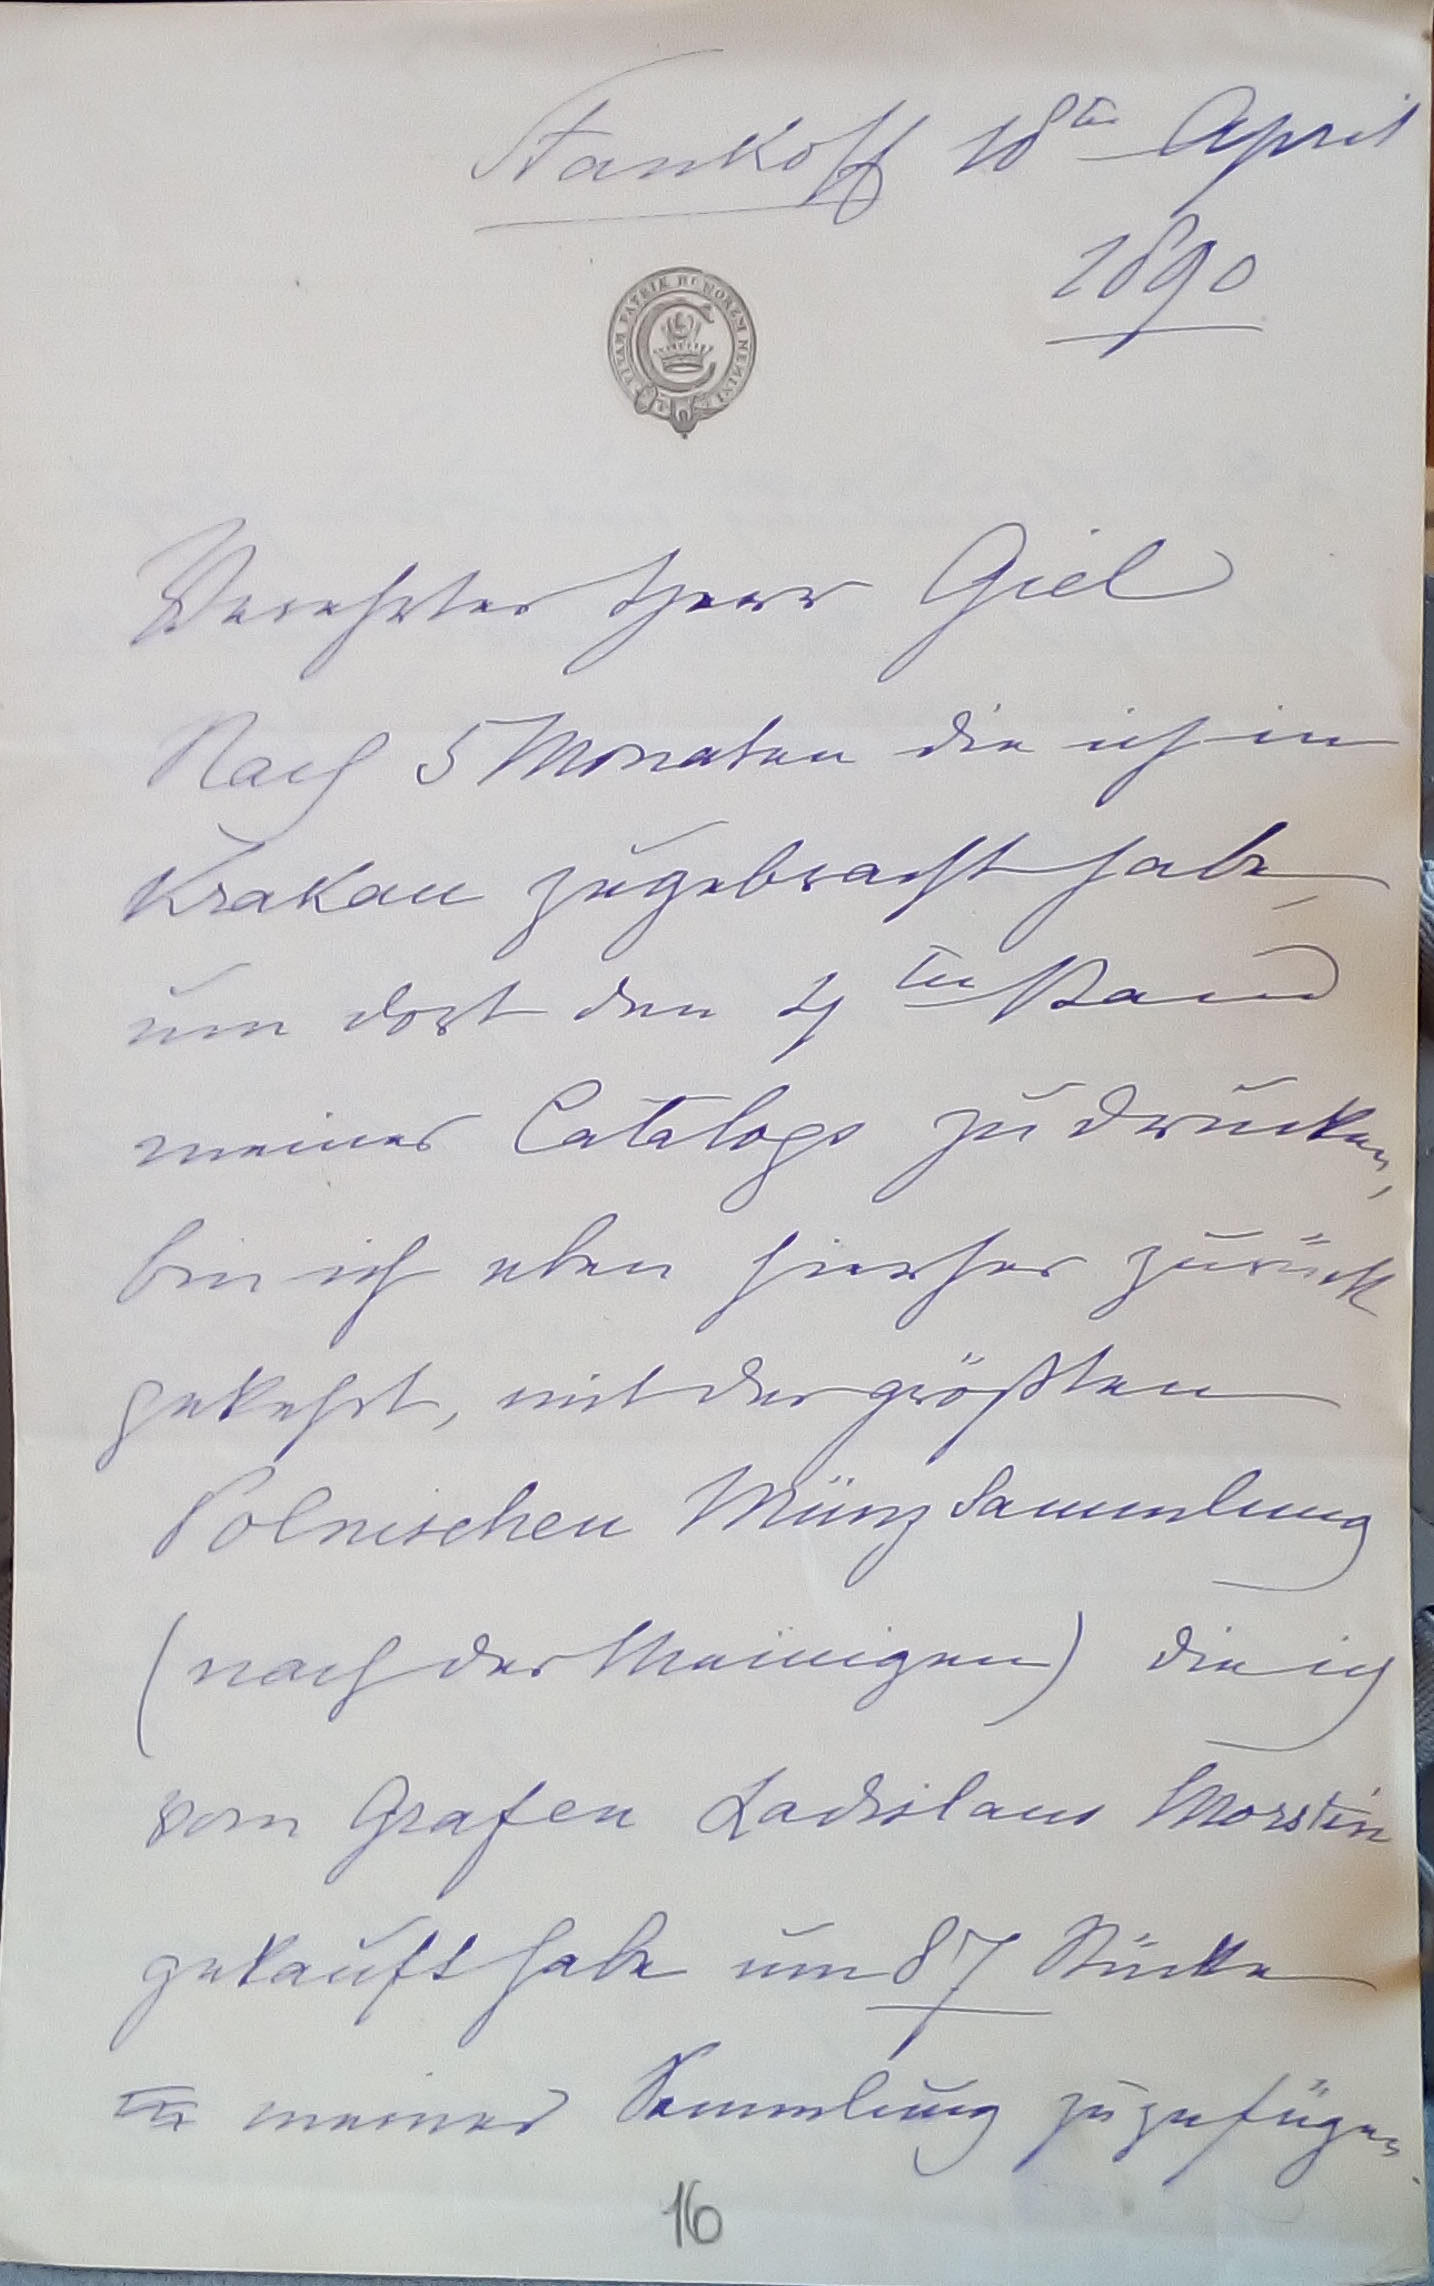 Stankoff 18ten April
1890
VITAM PATRIÆ HONOREM NEMINI
C
Verehrter Herr Giel
Nach 5 Monaten die ich in
Krakau zugebracht habe,
um dort den 4ten Band
meines Catalogs zu drucken,
bin ich eben hierher zurück
gekehrt, mit der größten
Polnischen Münz Sammlung
(nach der Meinigen) die ich
vom Grafen Ladislaus Morstin
gekauft habe um 87 Stücke
meiner Sammlung zuzufügen.
16